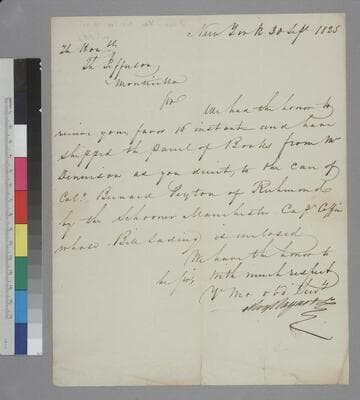 New York 20 Sept 1825
Th Honble
Th Jefferson
Monticello
Sir
We had the honor to
receive your favor 10 instant and have
shipped the parcel of Books from Mr
as you direct, to the care of
Colo. Bernard Peyton of Richmond
by the Schooner Manchester Capt Coffin
whose Bill Lading is enclosed
We have the honor to
be Sir, With much respect
Yr Mo. obd. Servts